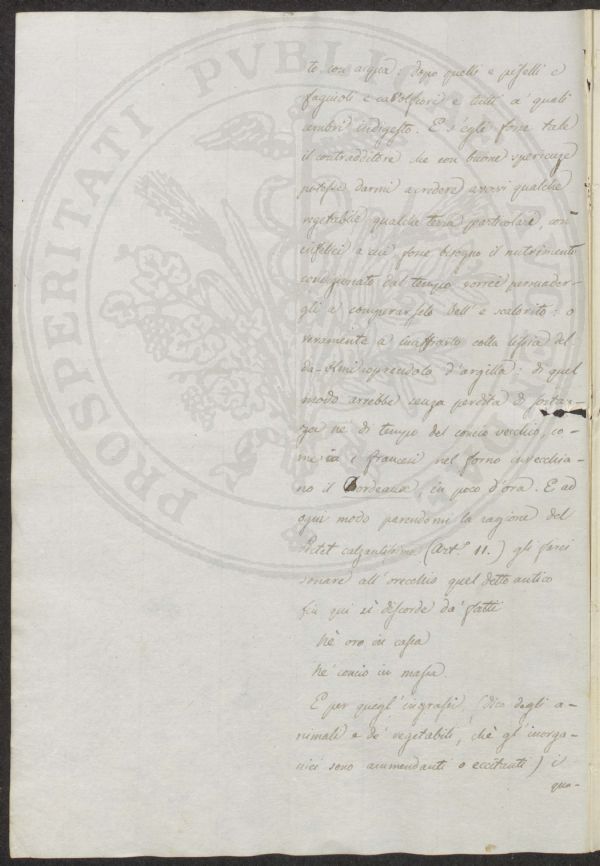 PROSPERITATI PVBLICAE
te con acqua: dopo quelli e piselli e
fagiuoli e cavolfiori e tutti a' quali
sembri indigesto. E s'egli fosse tale
il contradditore che con buone sperienze
potesse darmi a credere avervi qualche
vegetabile, qualche terra particolare, con
a cui fosse bisogno il nutrimento
dal tempo vorrei persuader-
gli a comperarselo bell'e scalorito: o
veramente a inaffiarlo colla lissia del
d'argilla: di quel
modo avrebbe senza perdita di sostan-
za nè di tempo del concio vecchio, co-
me i francesi nel forno invecchia-
no il Bordeaux, in poco d'ora. E ad
ogni modo parendomi la ragione del
calzantissima (Art.º 11.) gli farei
sonare all'orecchio quel detto antico
fin qui sì discorde da' fatti
Nè oro in cassa
Nè concio in massa.
E per quegl'ingrassi, (dico degli a-
nimali e de' vegetabili, chè gl'inorga-
nici sono ammendanti o eccitanti) i
qua-